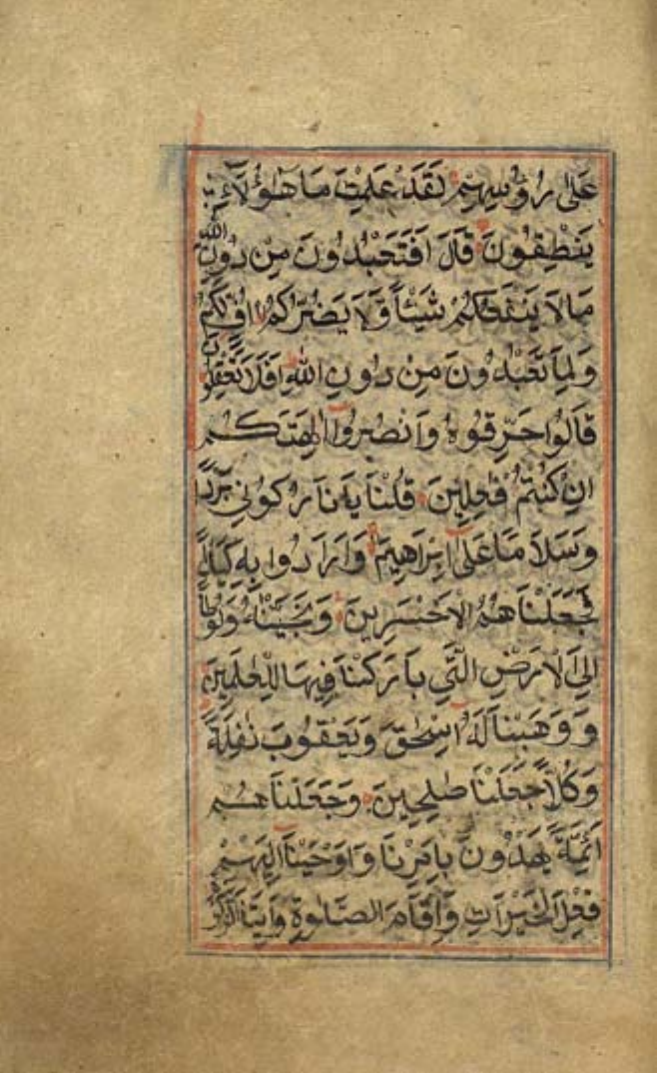 عَلَىٰ رُؤُسِهِمْ لَقَدْ عَلِمْتَ مَا هٰٓؤُلَآءِ
يَنْطِقُونَ قَالَ اَفَتَعْبُدُونَ مِنْ دُونِ اللّٰهِ
مَا لَا يَنْفَعُكُمْ شَيْـًٔا وَلَا يَضُرُّكُمْ اُفٍّ لَكُمْ
وَلِمَا تَعْبُدُونَ مِنْ دُونِ اللّٰهِ اَفَلَا تَعْقِلُونَ
قَالُوا حَرِّقُوهُ وَانْصُرُوا اٰلِهَتَكُمْ
اِنْ كُنْتُمْ فٰعِلِينَ قُلْنَا يَا نَارُ كُونِي بَرْدًا
وَسَلَامًا عَلٰى اِبْرَاهِيمَ وَاَرَادُوا بِهِ كَيْدًا
فَجَعَلْنَاهُمُ الْاَخْسَرِينَ وَنَجَّيْنَاهُ وَلُوطًا
اِلَى الْاَرْضِ الَّتِي بَارَكْنَا فِيهَا لِلْعٰلَمِينَ
وَوَهَبْنَا لَهُ اِسْحٰقَ وَيَعْقُوبَ نَافِلَةً
وَكُلًّا جَعَلْنَا صٰلِحِينَ وَجَعَلْنَاهُمْ
اَئِمَّةً يَهْدُونَ بِاَمْرِنَا وَاَوْحَيْنَا اِلَيْهِمْ
فِعْلَ الْخَيْرَاتِ وَاِقَامَ الصَّلٰوةِ وَاِيتَآءَ الزَّكٰوةِ